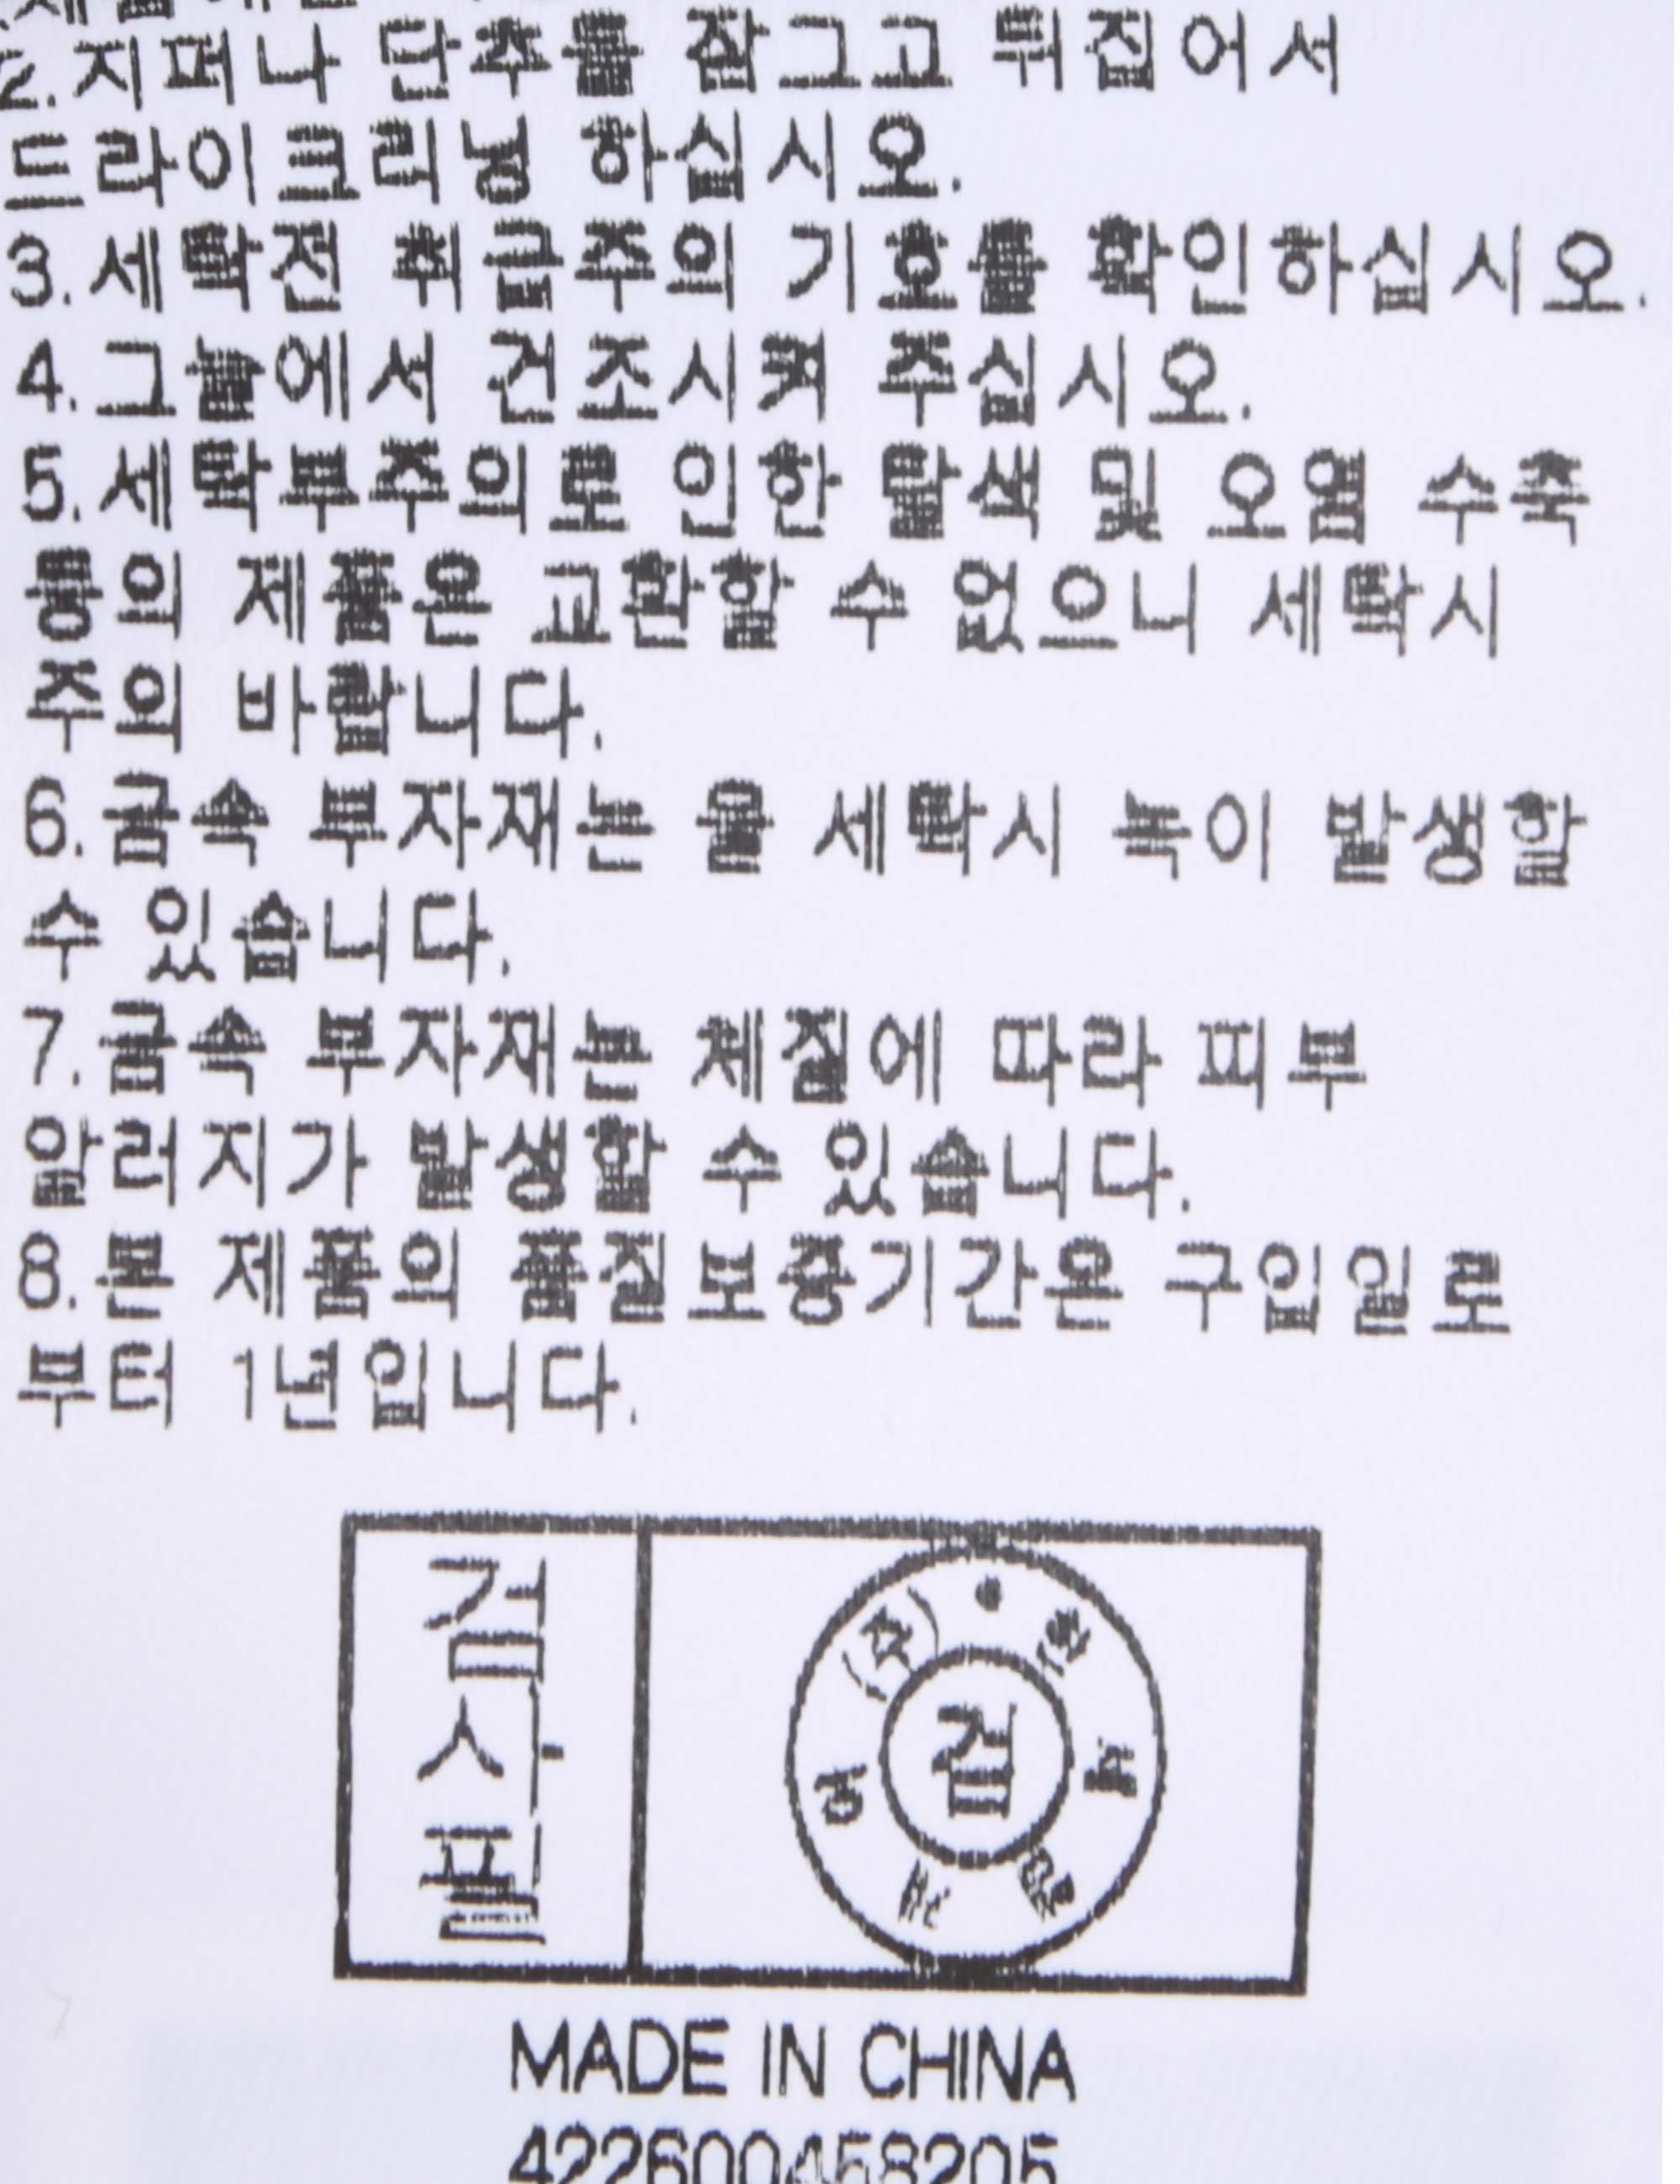 2.지퍼나 단추를 잠그고 뒤집어서
드라이크리닝 하십시오.
3.세탁전 취급주의 기호를 확인하십시오.
4.그늘에서 건조시켜 주십시오.
5.세탁부주의로 인한 탈색 및 오염 수축
등의 제품은 교환할 수 없으니 세탁시
주의 바랍니다.
6.금속 부자재는 물 세탁시 녹이 발생할
수 있습니다.
7.금속 부자재는 체질에 따라 피부
알러지가 발생할 수 있습니다.
8.본 제품의 품질보증기간은 구입일로
부터 1년입니다.
검사필
검
MADE IN CHINA
422600458205